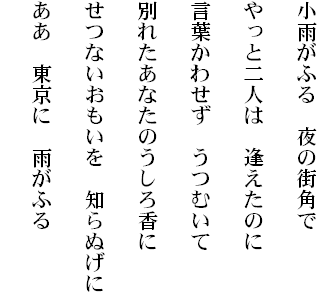 小雨がふる　夜の街角で
やっと二人は　逢えたのに
言葉かわせず　うつむいて
別れたあなたのうしろ香に
せつないおもいを　知らぬげに
ああ　東京に　雨がふる